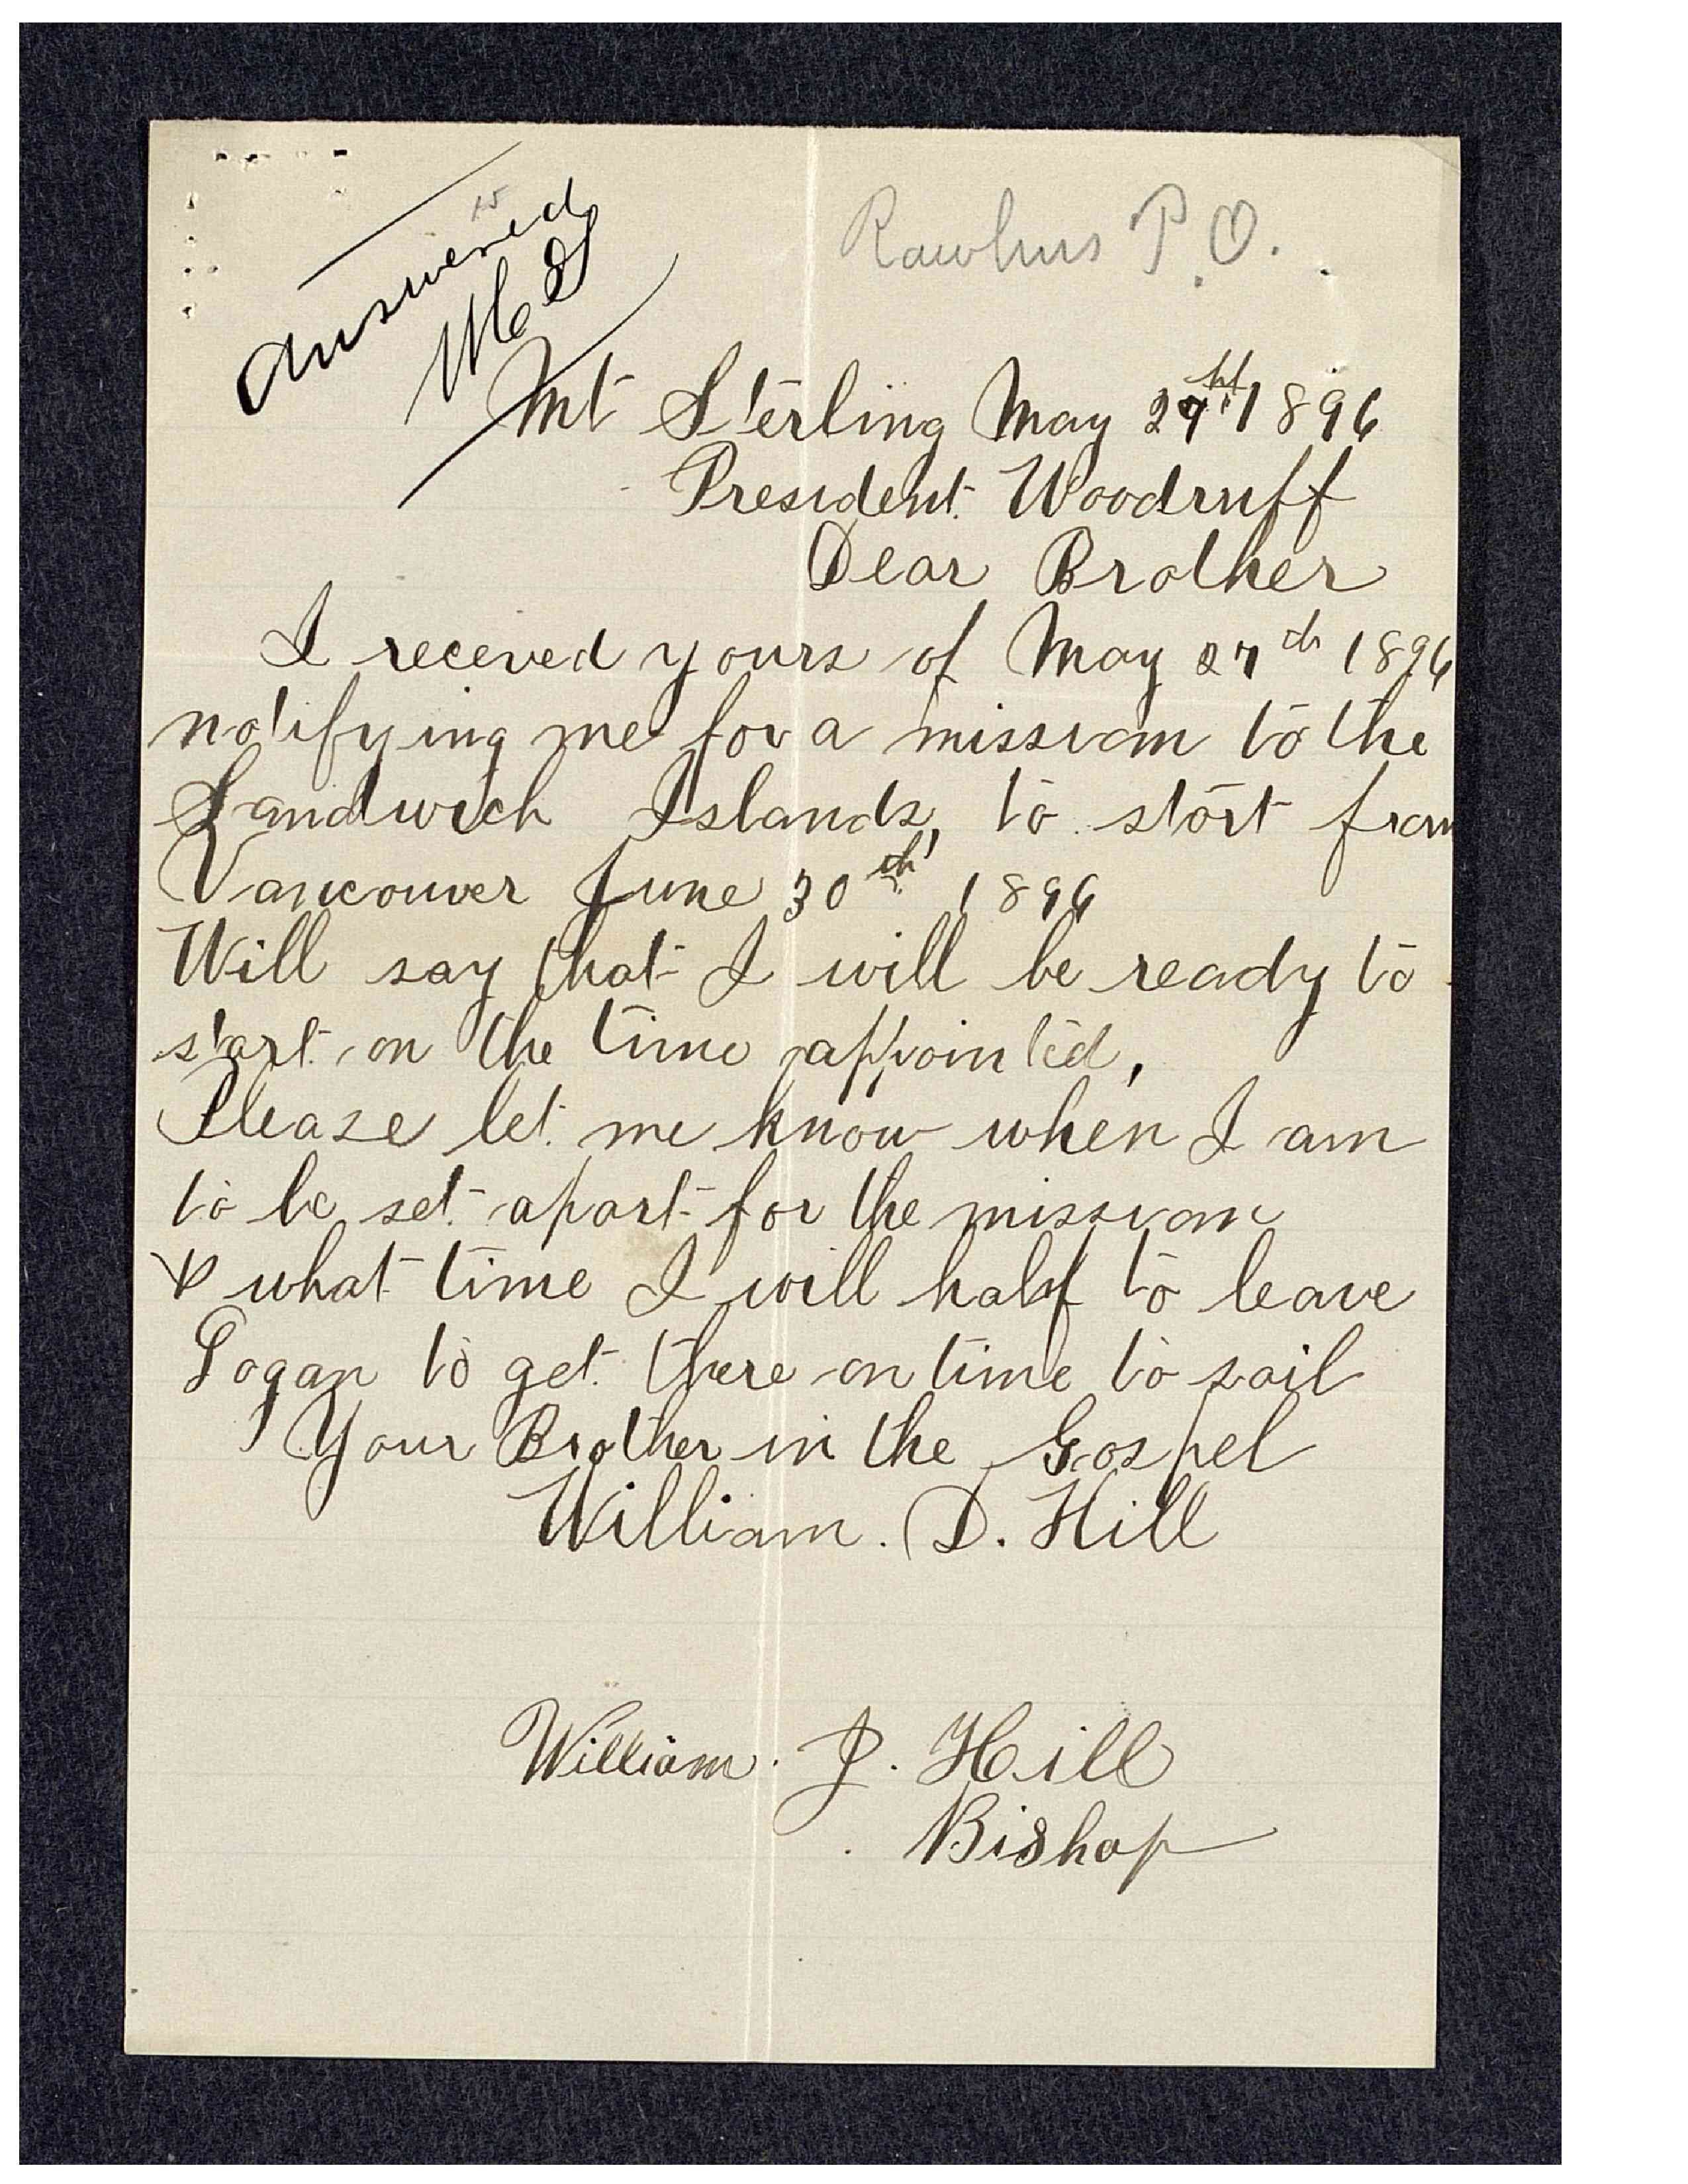 Answered
Rawlins P.O.
Mt Sterling May 29th 1896
President Woodruff
Dear Brother
I receved yours of May 27th 1896
notifying me for a mission to the
Sandwich Islands, to start from
Vancouver June 30th 1896
Will say that I will be ready to
start on the time appointed,
Please let me know when I am
to be set apart for the mission
& what time I will half to leave
Logan to get there on time to sail
Your Brother in the Gospel
William. D. Hill
William. J. Hill
Bishop